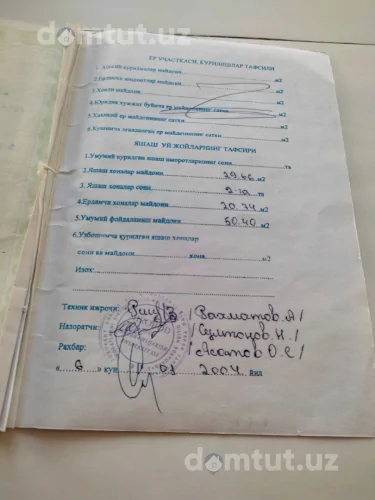 domtut.uz
ЕР УЧАСТКАСИ, ҚУРИЛИШЛАР ТАФСИЛИ
1. Асосий қурилмалар майдони м2
2. Ёрдамчи хоналар майдони м2
3. Ховли майдони м2
4. Юридик хужжат буйича ер майдонининг сатхи м2
5. Хақиқий ер майдонининг сатхи м2
м2
ЯШАШ УЙ ЖОЙЛАРИНИНГ ТАФСИРИ
1. Умумий қурилган яшаш иморотларининг сони та
2. Яшаш хоналар майдони 29.66 м2
3. Яшаш хоналар сони 2 та та
4. Ёрдамчи хоналар майдони 20.74 м2
5. Умумий фойдаланиш майдони 50.40 м2
6. Узбошимча қурилган яшаш хоналар
сони ва майдони хона м2
Изох:
Техник ижрочи: /Рахматов.А/
Назоратчи: /Султонов.Н./
Рахбар: /Асатов О.С/
« 6 » кун 01 2004 йил
domtut.uz